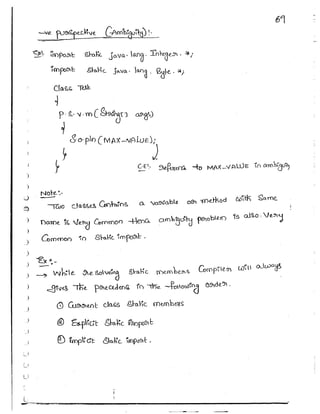 69
-ve perspective (Ambiguity):-
Ex: import static java.lang.Integer.*;
import static java.lang.Byte.*;
class Test
{
p.s.v.m(String[] args)
{
S.o.pln(MAX-VALUE);
}
}
C.E:- reference to MAX-VALUE is ambiguity
Note:-
Two classes Contains a variable or method with Same
name is Very Common Hence ambiguity problem is also Very
Common in Static import.
Ex:-
→ While resolving static members Compiler will always
gives The precedence in The following order.
① Current class static members
② Explicit static import
③ implicit static import.